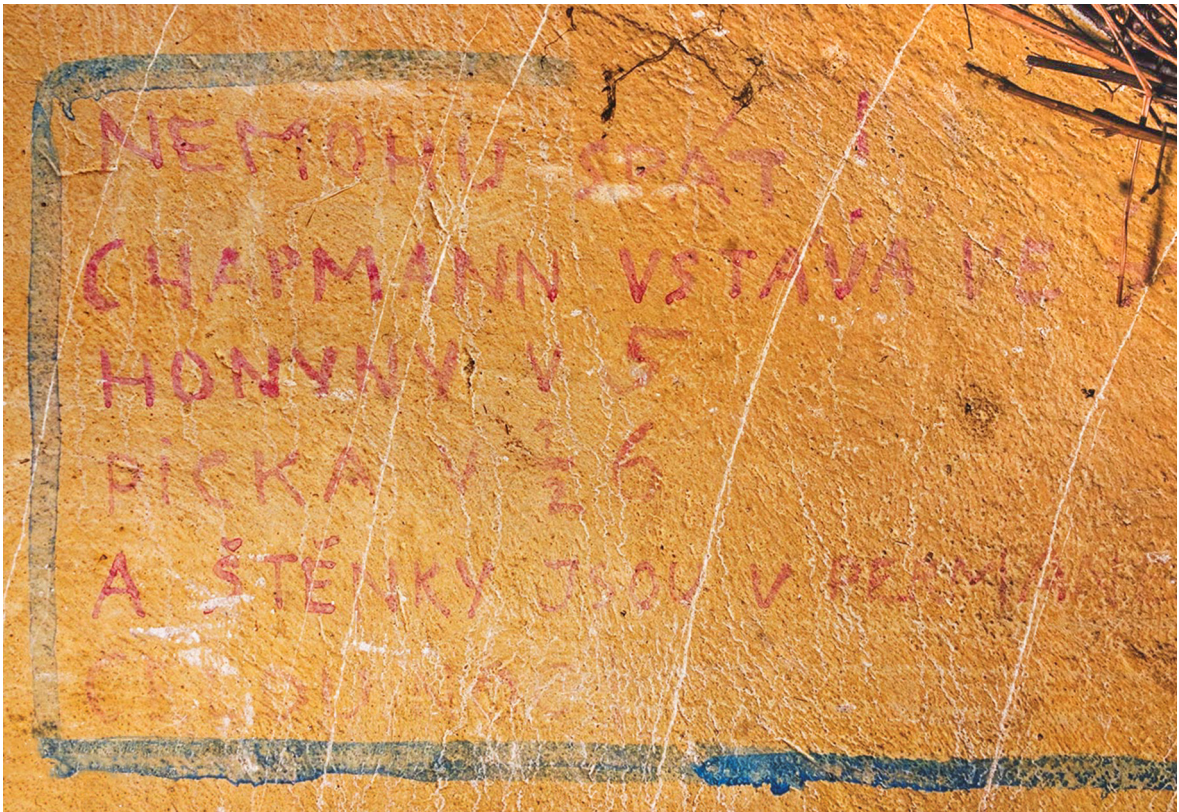 NEMOHU SPÁT!
CHAPMANN VSTÁVÁ KE
HONVNY V 5
PÍCKA V ½ 6
A ŠTĚNKY JSOU V
CELOU NOC